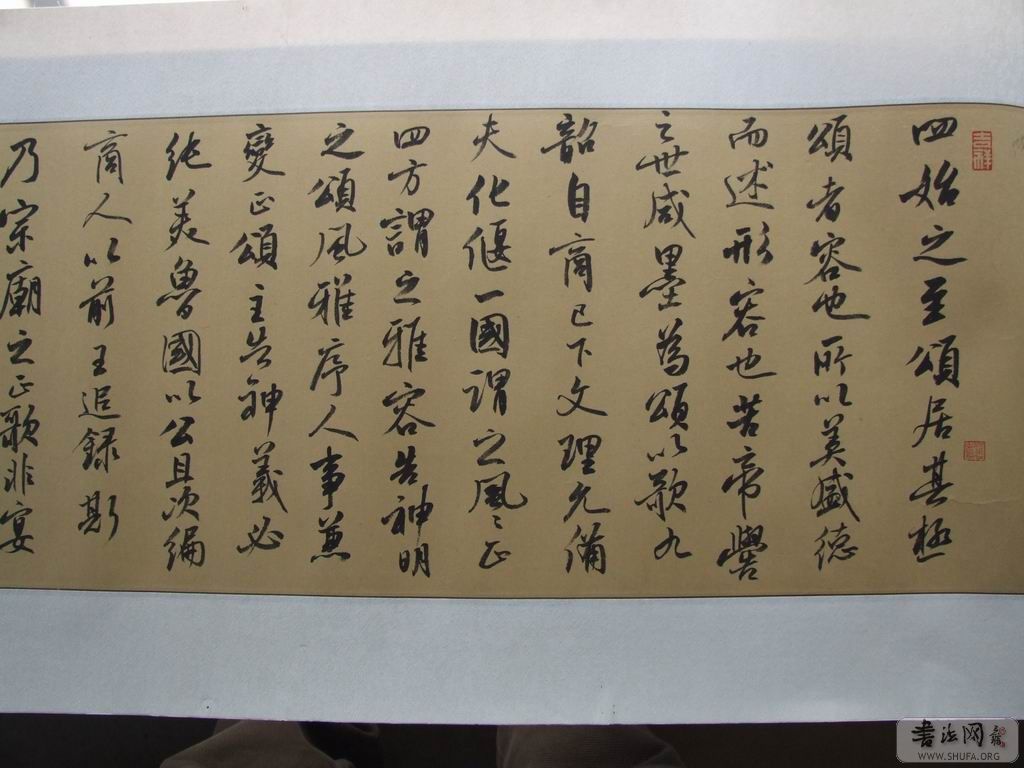 吉祥
四始之至頌居其極
頌者容也所以美盛德
而述形容也昔帝嚳
之世咸墨為頌以歌九
韶自商已下文理允備
夫化偃一國謂之風〻正
四方謂之雅容告神明
之頌風雅序人事兼
變正頌主告神義必
純美魯國以公旦次編
商人以前王追録斯
乃宗廟之正歌非宴
書法网
WWW.SHUFA.ORG